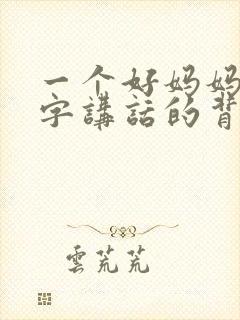 一个好妈妈
字講話的背
雲荒荒